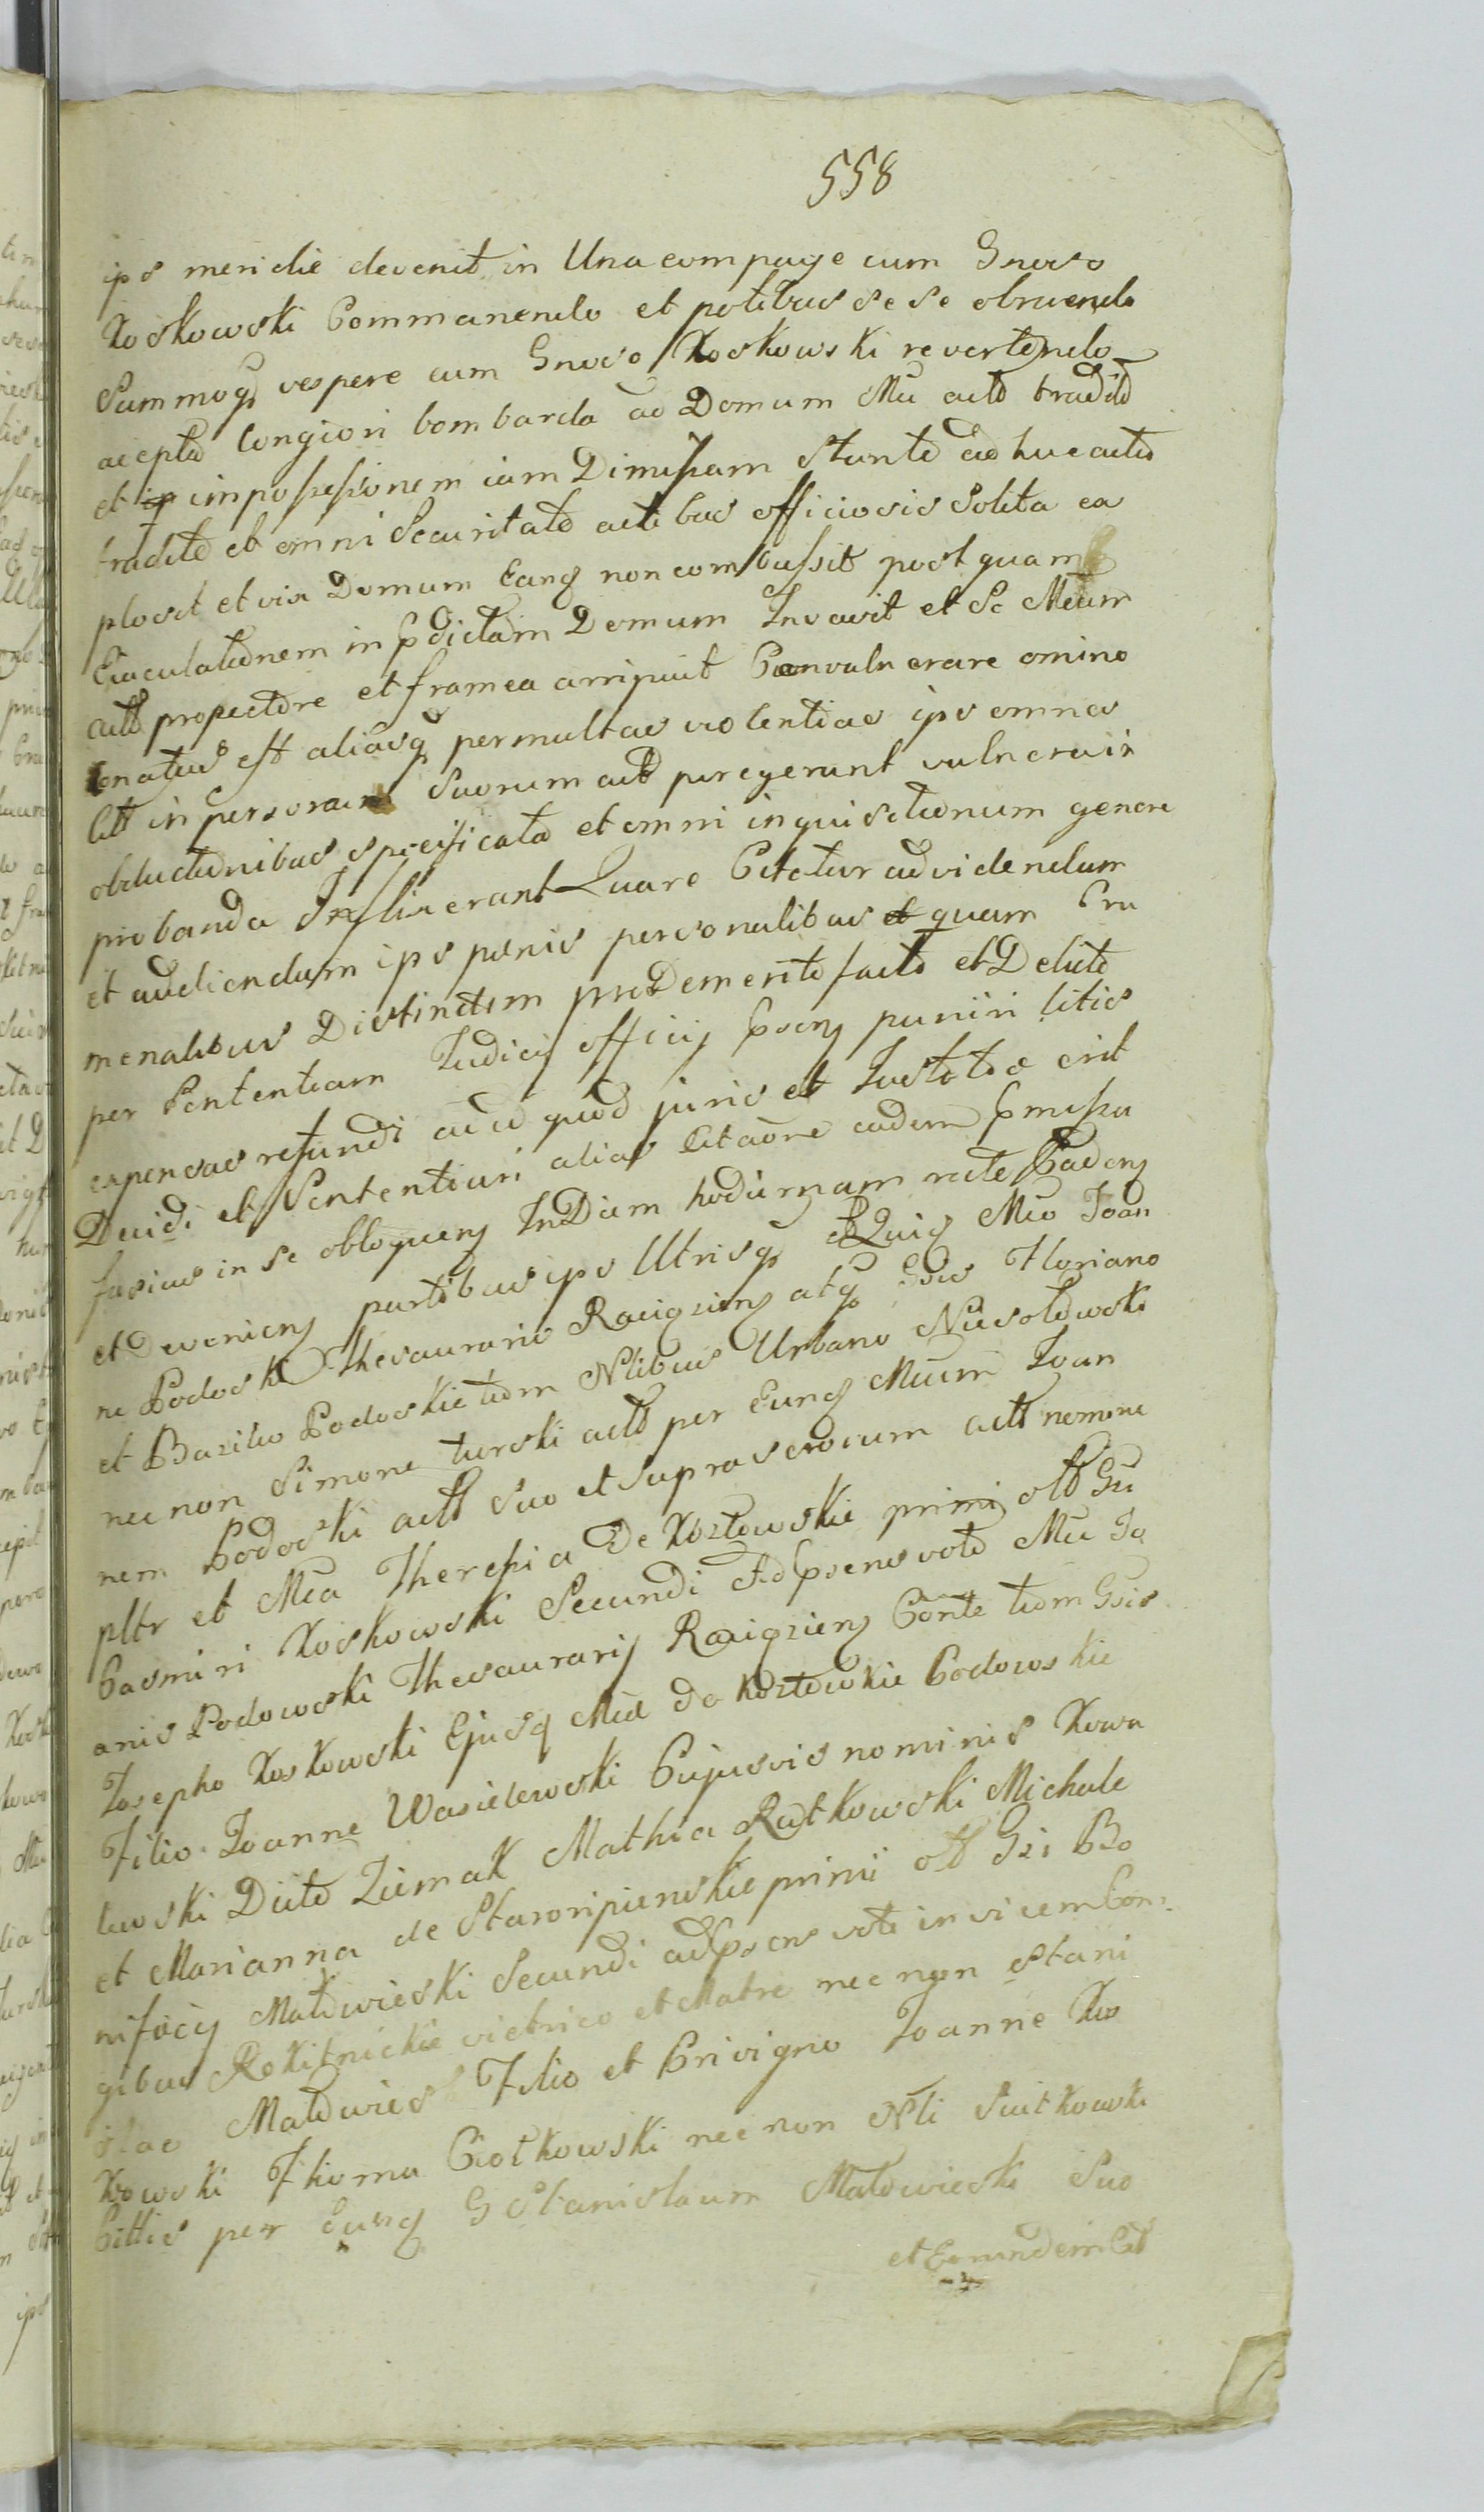 558
ips meridie devenit in Una compage cum Gnoso
Koskowski Commanendo et potibus se se obruendo
Summoq vespere cum Gnoso Koskowski revertendo
accepta longiori bombarda ad Domum Mci actt tradit
et in possessionem iam Dimissam stante adhuc actis
tradit et omni Securitate actibus officiosis Solita ex
plosit et vix Domum Eanq non combussit postquam
Eiaculationem in pdictam Domum Invasit et Se Mcum
actt propectore et framea arripuit Convulnerare omino
Conatus est aliasq permultas violentias ips omnes
Citt in personam Suorum actt peregerunt vulnera in
obductionibus specificata et omni inquisitionum genere
probanda Inflixerunt Quare Citatur ad videndum
et audiendum ips penis personalibus quam Cri
menalibus Distinctim pro Demerito facto et Delicto
per Sententiam Judicij officij psenq puniri litis
expensas refundi ac id quod juris et Justitiae erit
Decidi et Sententiari alias Citaone eadem pmissa
fusius in se obloquenq In Diem hodiernam recte Cadenq
et Devenienq partibus ips Utrisq Mco Joan
ne Podoski Thesaurario Raciqzienq atq Gsis Floriano
et Bazilio Podoskie tum Nlibus Urbano Niesolowski
nec non Simone turski actt per Eunq Mcum Joan
nem Podoski actt suo et supra scrorum actt nomine
pltr et Mca Theressia De Kozlowskie primi olt Gsi
Casmiri Koskowski Secundi Ad psens voto Mci Jo
anis Podowski Thesaurarij Raciqzienq Conte tum Gsis
Josepho Koskowski Ejusq Mcae de Kozlowskie Podowskie
Filio Joanne Wasielewski Cujusvis nominis Kowa
lewski Dicto Ziemak Mathia Ratkowski Michale
et Marianna de Staroripienskie primi olt Gsi Bo
nifacij Malowieski Secundi ad psens voti invicem Con-
gibus Rokitnickie victrico et Matre nec non Stani
slao Malowieski Filio et Privigno Joanne Kos
kowski Thoma Ciolkowski nec non Nli Suitkowski
Cittis per Eunq G Stanislaum Malowieski Suo
et Eorundem Citt